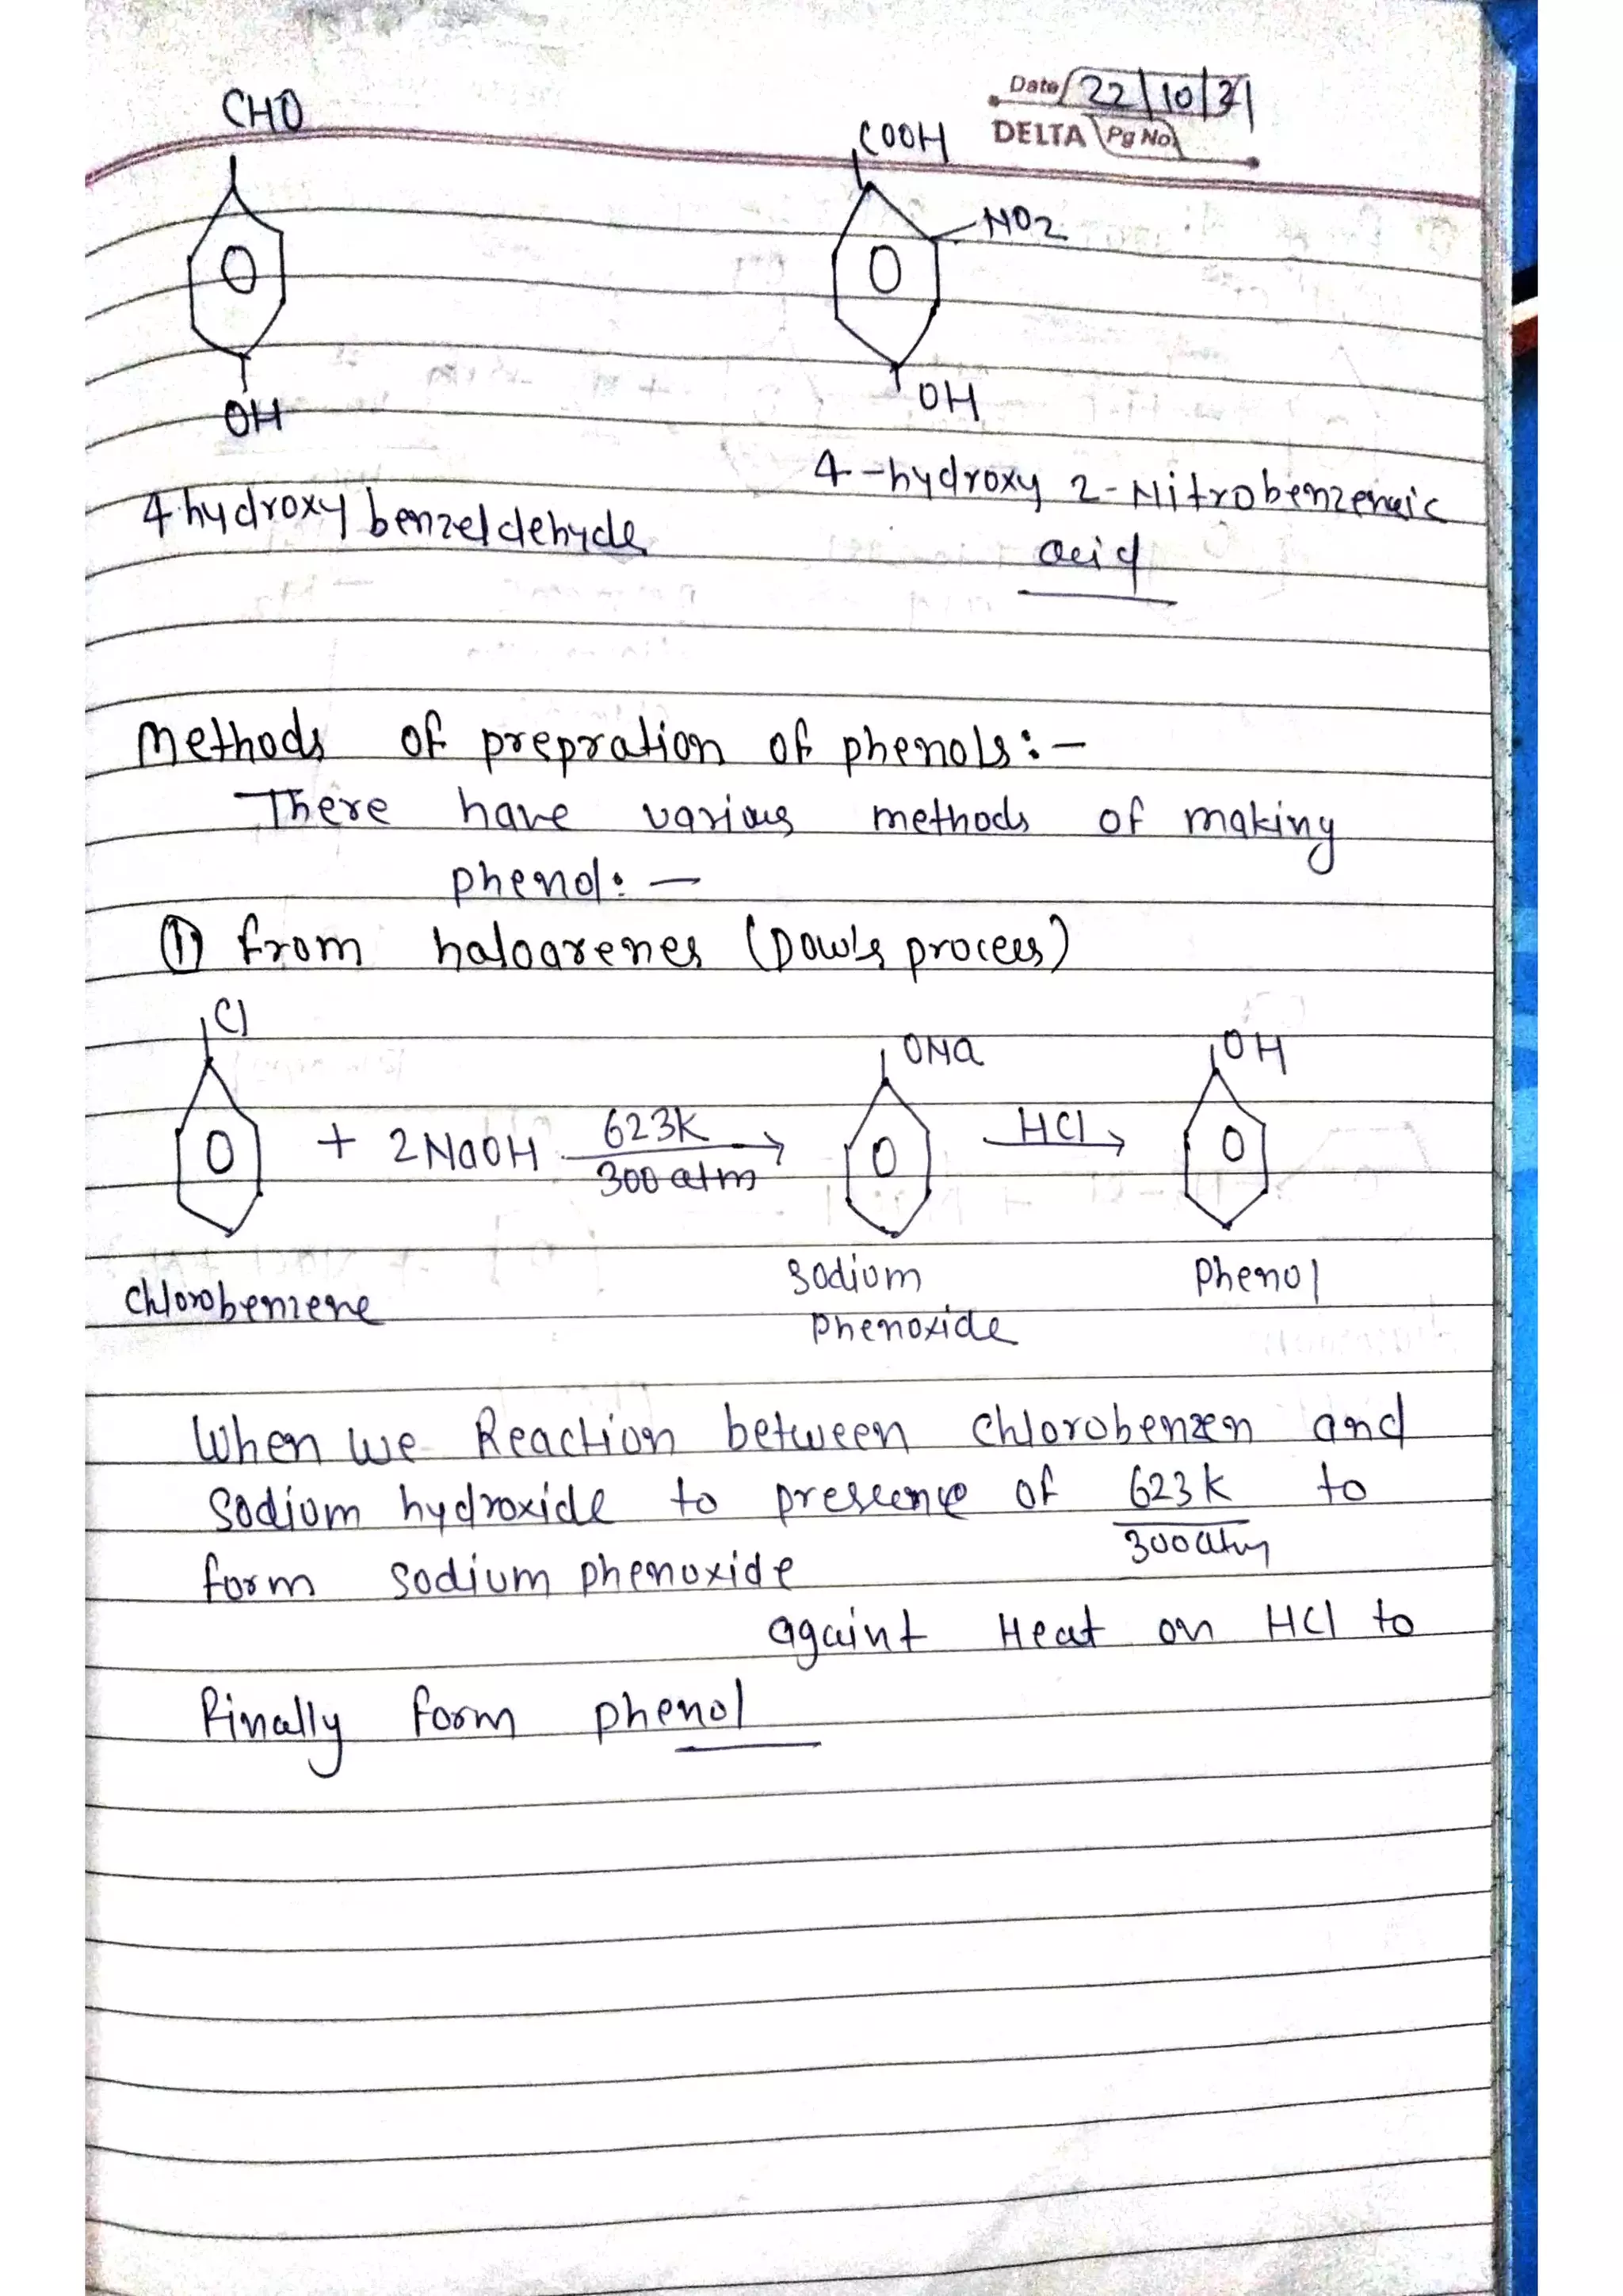 Date 22/10/21
DELTA Pg No
CHO
OH
4-hydroxy benzeldehyde
COOH
NO2
OH
4-hydroxy 2-Nitrobenzenuic
acid
Methods of prepration of phenols:-
There have various methods of making
phenol:-
① from haloarenes (Dow's process)
Cl + 2NaOH 623K 300 atm → ONa HCl → OH
Chlorobenzene
Sodium
phenoxide
Phenol
When we Reaction between chlorobenzen and
Sodium hydroxide to presence of 623K to
300 atm
form sodium phenoxide
againt Heat on HCl to
finally form phenol